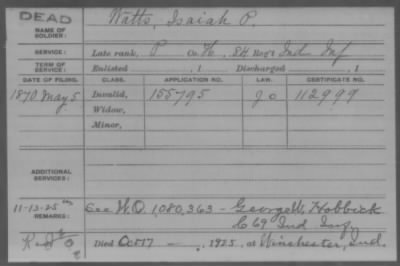 DEAD
NAME OF SOLDIER: Watts, Isaiah P.
SERVICE: Late rank, P Co. H, 84 Reg't Ind. Inf
TERM OF SERVICE: Enlisted , 1 Discharged , 1
DATE OF FILING. CLASS. APPLICATION NO. LAW. CERTIFICATE NO.
1870 May 5 Invalid, 155795 112999
Widow,
Minor,
ADDITIONAL SERVICES:
11-13-25 See W.O. 1,080,363 - George W. Hobbick
REMARKS: C 69 Ind Inf.
Died Oct 17 - , 1925, at Winchester, Ind.